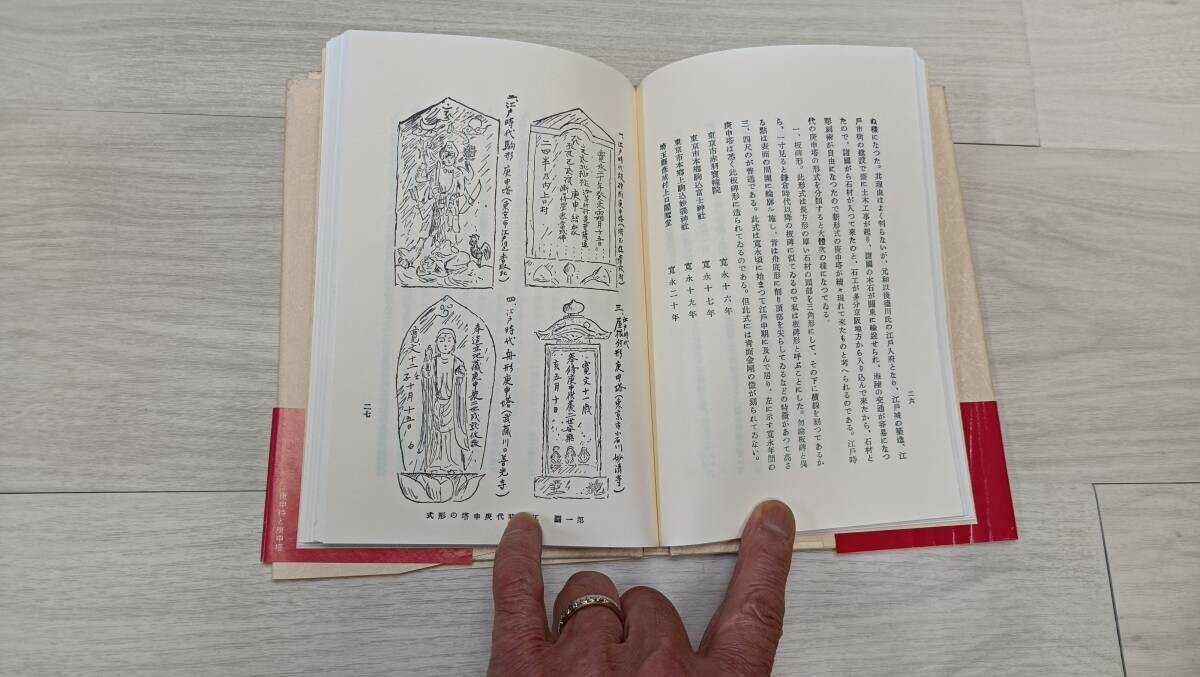 二六
ぬ樣になつた。其理由はよく判らないが、元和以後德川氏の江戸入府となり、江戸城の築造、江
戸市街の建設で壺に土木工事が起り、諸國の木石が關東に輸送せられ、海陸の交通が容易になつ
たので、諸國から石材が入つて來たのと、石工が多分京阪地方から入り込んで來たから、石材と
彫刻術が自由になつたので新形式の庚申塔が續々現れて來たものと考へられるのである。江戸時
代の庚申塔の形式を分類すると大體次の樣になつてゐる。
一、板碑形。此形式は長方形の厚い石材の頭部を三角形にして、その下に橫線を刻つてあるか
ら、一寸見ると鎌倉時代以降の板碑に似てゐるので私は板碑形と呼ぶことにした。勿論板碑と異
る點は表面の周圍に輪廓を施し、背は舟底形に削り頂部を尖らしてゐるなどの特徵があつて高さ
三、四尺のが普通である。此式は寬永頃に始まつて江戸中期に及んで居り、左に示す寬永年間の
庚申塔は悉く此板碑形に造られてゐるのである。但此式には靑面金剛の像が刻られてゐない。
東京市赤羽寶幢院 寬永十六年
東京市本鄕駒込富士神社 寬永十七年
東京市本鄕上駒込妙義神社 寬永十九年
埼玉縣潮止村上口閻魔堂 寬永二十年
一、江戸時代板碑形庚申塔
寬永二十年癸未霜月十五日
庚申結衆
二、江戸時代駒形庚申塔(東京市江戸川区
三、江戸時代屋根付形庚申塔(東京市小石川妙清寺)
寛文十一歳
奉待庚申供養二世安樂
亥五月十日
四、江戸時代舟形庚申塔(武藏川口善光寺)
奉造立地藏庚申供養二世成就攸
寛文十二壬子十月十五日
第一圖 代庚申塔の形式
二七
庚申待と庚申塔